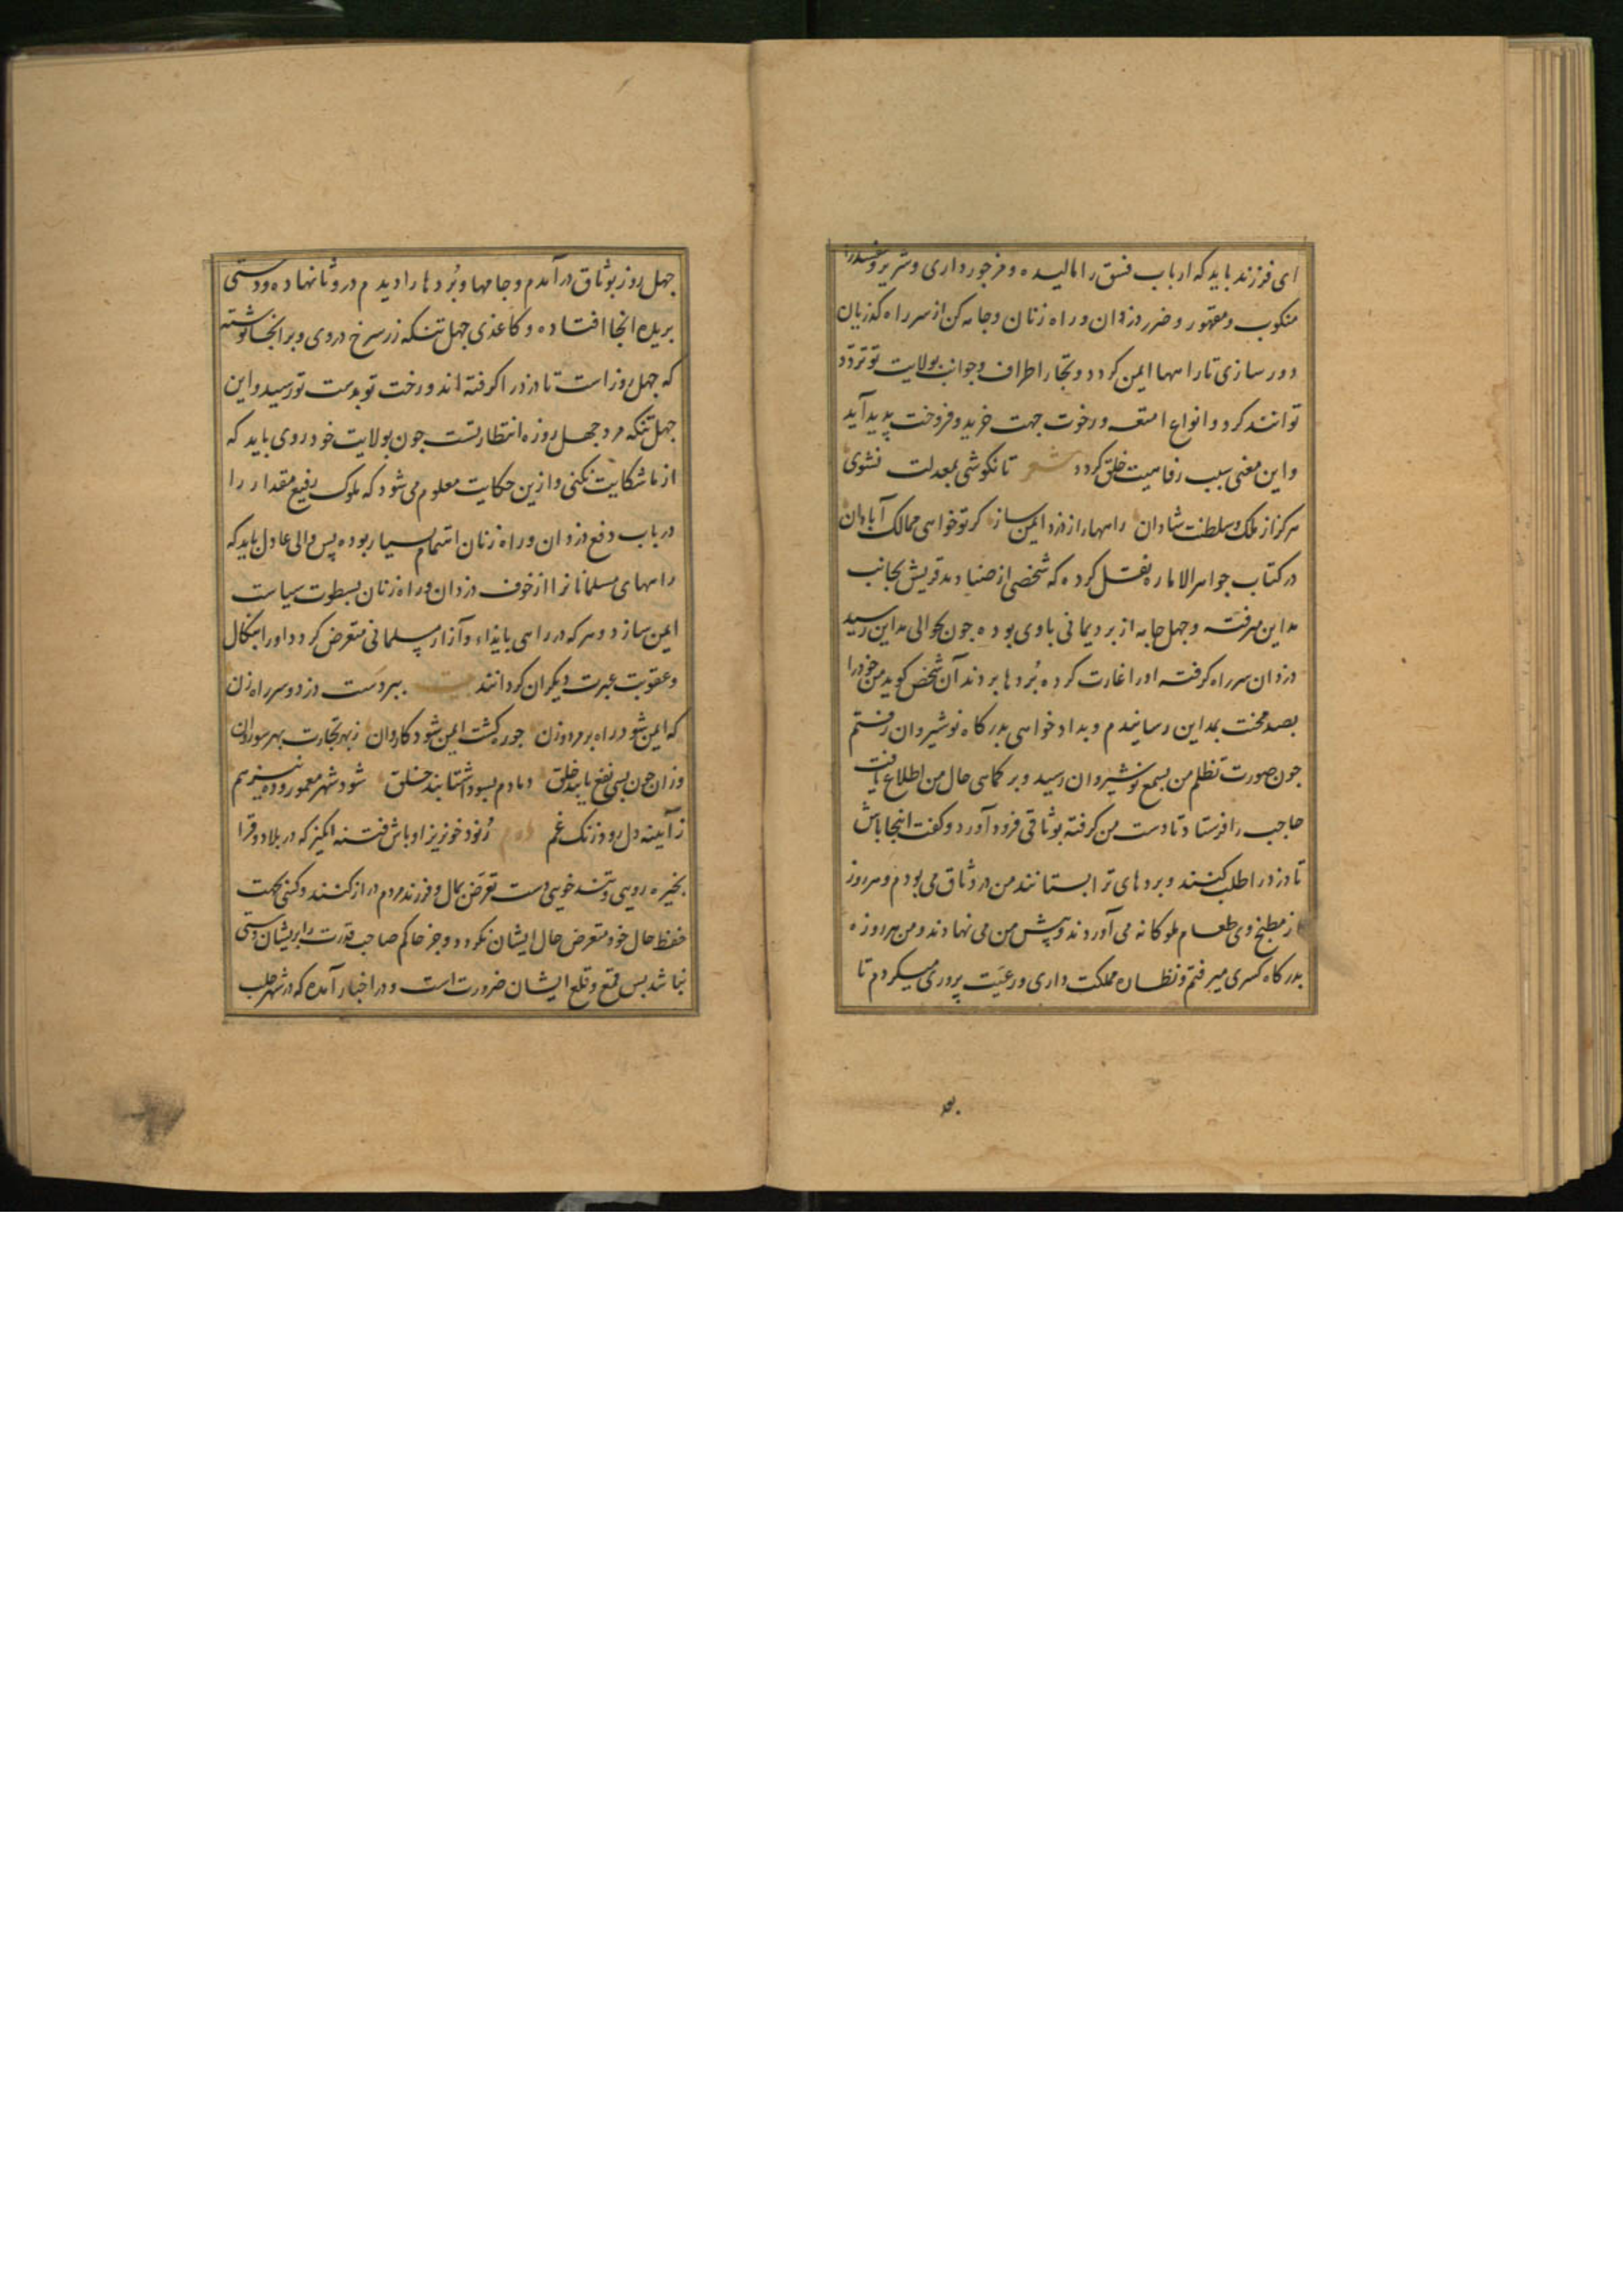 ای فرزند باید که ارباب فسق را مالیده و مزجور داری و شریر و مفسد را
منکوب و مقهور و ضرر دزدان و راه زنان و جامه کن از سر راه کذریان
دور سازی تا راهها ایمن کردد و تجار اطراف و جوانب بولایت تو تردد
توانند کرد و انواع امتعه و رخوت جهت خرید و فروخت پدید آید
و این معنی سبب رفاهیت خلق کردد شعر تا نکوشی بمعدلت نشوی
هرکز از ملک و سلطنت شادان راهها را از دزد ایمن ساز کر تو خواهی ممالک آبادان
در کتاب جواهر الاماره نقل کرده که شخصی از صنادید قریش بجانب
مداین میرفته و چهل جامه از برد یمانی با وی بوده چون بحوالی مداین رسید
دزدان سر راه کرفته او را غارت کرده بُردها بردند آن شخص کوید من خود را
بصد محنت بمداین رسانیدم و بداد خواهی بدرکاه نوشیروان رفتم
چون صورت تظلم من بسمع نوشیروان رسید و بر کماهی حال من اطلاع یافت
حاجب را فرستاد تا دست من کرفته بوثاقی فرود آورد و کفت اینجا باش
تا دزد را طلب کنند و بردهای ترا بستانند من در وثاق می بودم و هر روز
از مطبخ وی طعام ملوکانه می آوردند و پیش من می نهادند و من هر روزه
بدرکاه کسری میرفتم و نظاره مملکت داری و رعیت پروری میکردم تا
جهل روز بوثاق درآمدم و جامها و بُردها را دیدم در وثاق نهاده و دستی
بریده انجا افتاده و کاغذی جهل تنکه زر سرخ در وی و بر انجا نوشته
که جهل روز است تا دزد را کرفته اند و رخت تو بدست تو رسید و این
جهل تنکه مزد جهل روزه انتظار تست جون بولایت خود روی باید که
از ما شکایت نکنی و ازین حکایت معلوم می شود که ملوک رفیع مقدار را
در باب دفع دزدان و راه زنان اهتمام بسیار بوده پس والی عادل باید که
راههای مسلمانانرا از خوف دزدان و راه زنان بسطوت سیاست
ایمن سازد و هر که در راهی بایذاء و آزار مسلمانی متعرض کردد او را بنکال
و عقوبت عبرت دیکران کردانند بیت ببر دست دزد و سر راه زن
که ایمن شود راه بر مرد و زن جو ره کشت ایمن شود کاروان ز بهر تجارت بهر سو روان
وزان جون بسی نفع یابند خلق دمادم بسود اشتابند خلق شود شهر معمور و ده نیز هم
ز آیینه دل رود زنک غم رنود خونریز اوباش فتنه انکیز که در بلاد و قرا
بخیره رویی و تند خویی دست تعرض بمال و فرزند مردم دراز کنند و کسی بجهت
حفظ حال خود متعرض حال ایشان نکردد و جز حاکم صاحب قدرت را بر ایشان دستی
نباشد پس قمع و قلع ایشان ضرورت است و در اخبار آمده که در شهر حلب